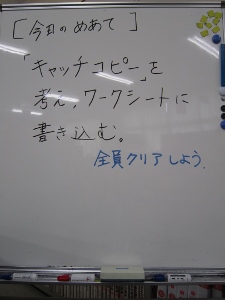 [今日のめあて]
「キャッチコピー」を
考え、ワークシートに
書き込む。
全員クリアしよう。